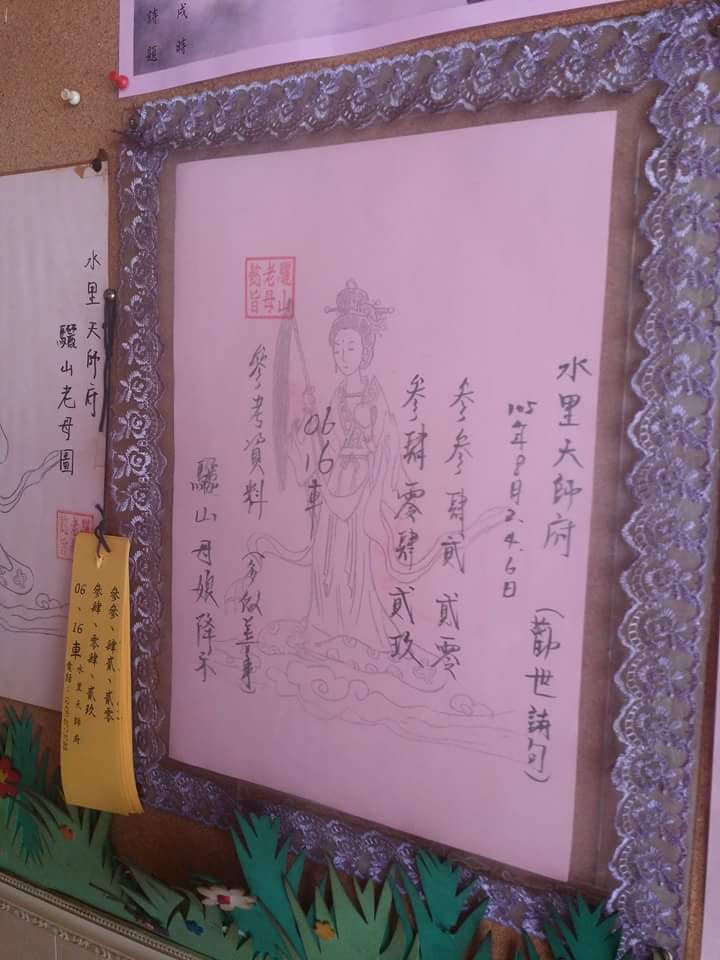 詩題
戌時
水里天師府
驪山老母圖
水里天師府
(勸世詩句)
105年9月2.4.6日
參參肆貳貳零
參肆零肆貳玖
06
16車
參考資料
(多做善事)
驪山母娘降示
驪山
老母
懿旨
參參、肆貳、貳零
參肆、零肆、貳玖
06、16車
水里天師府
電話: